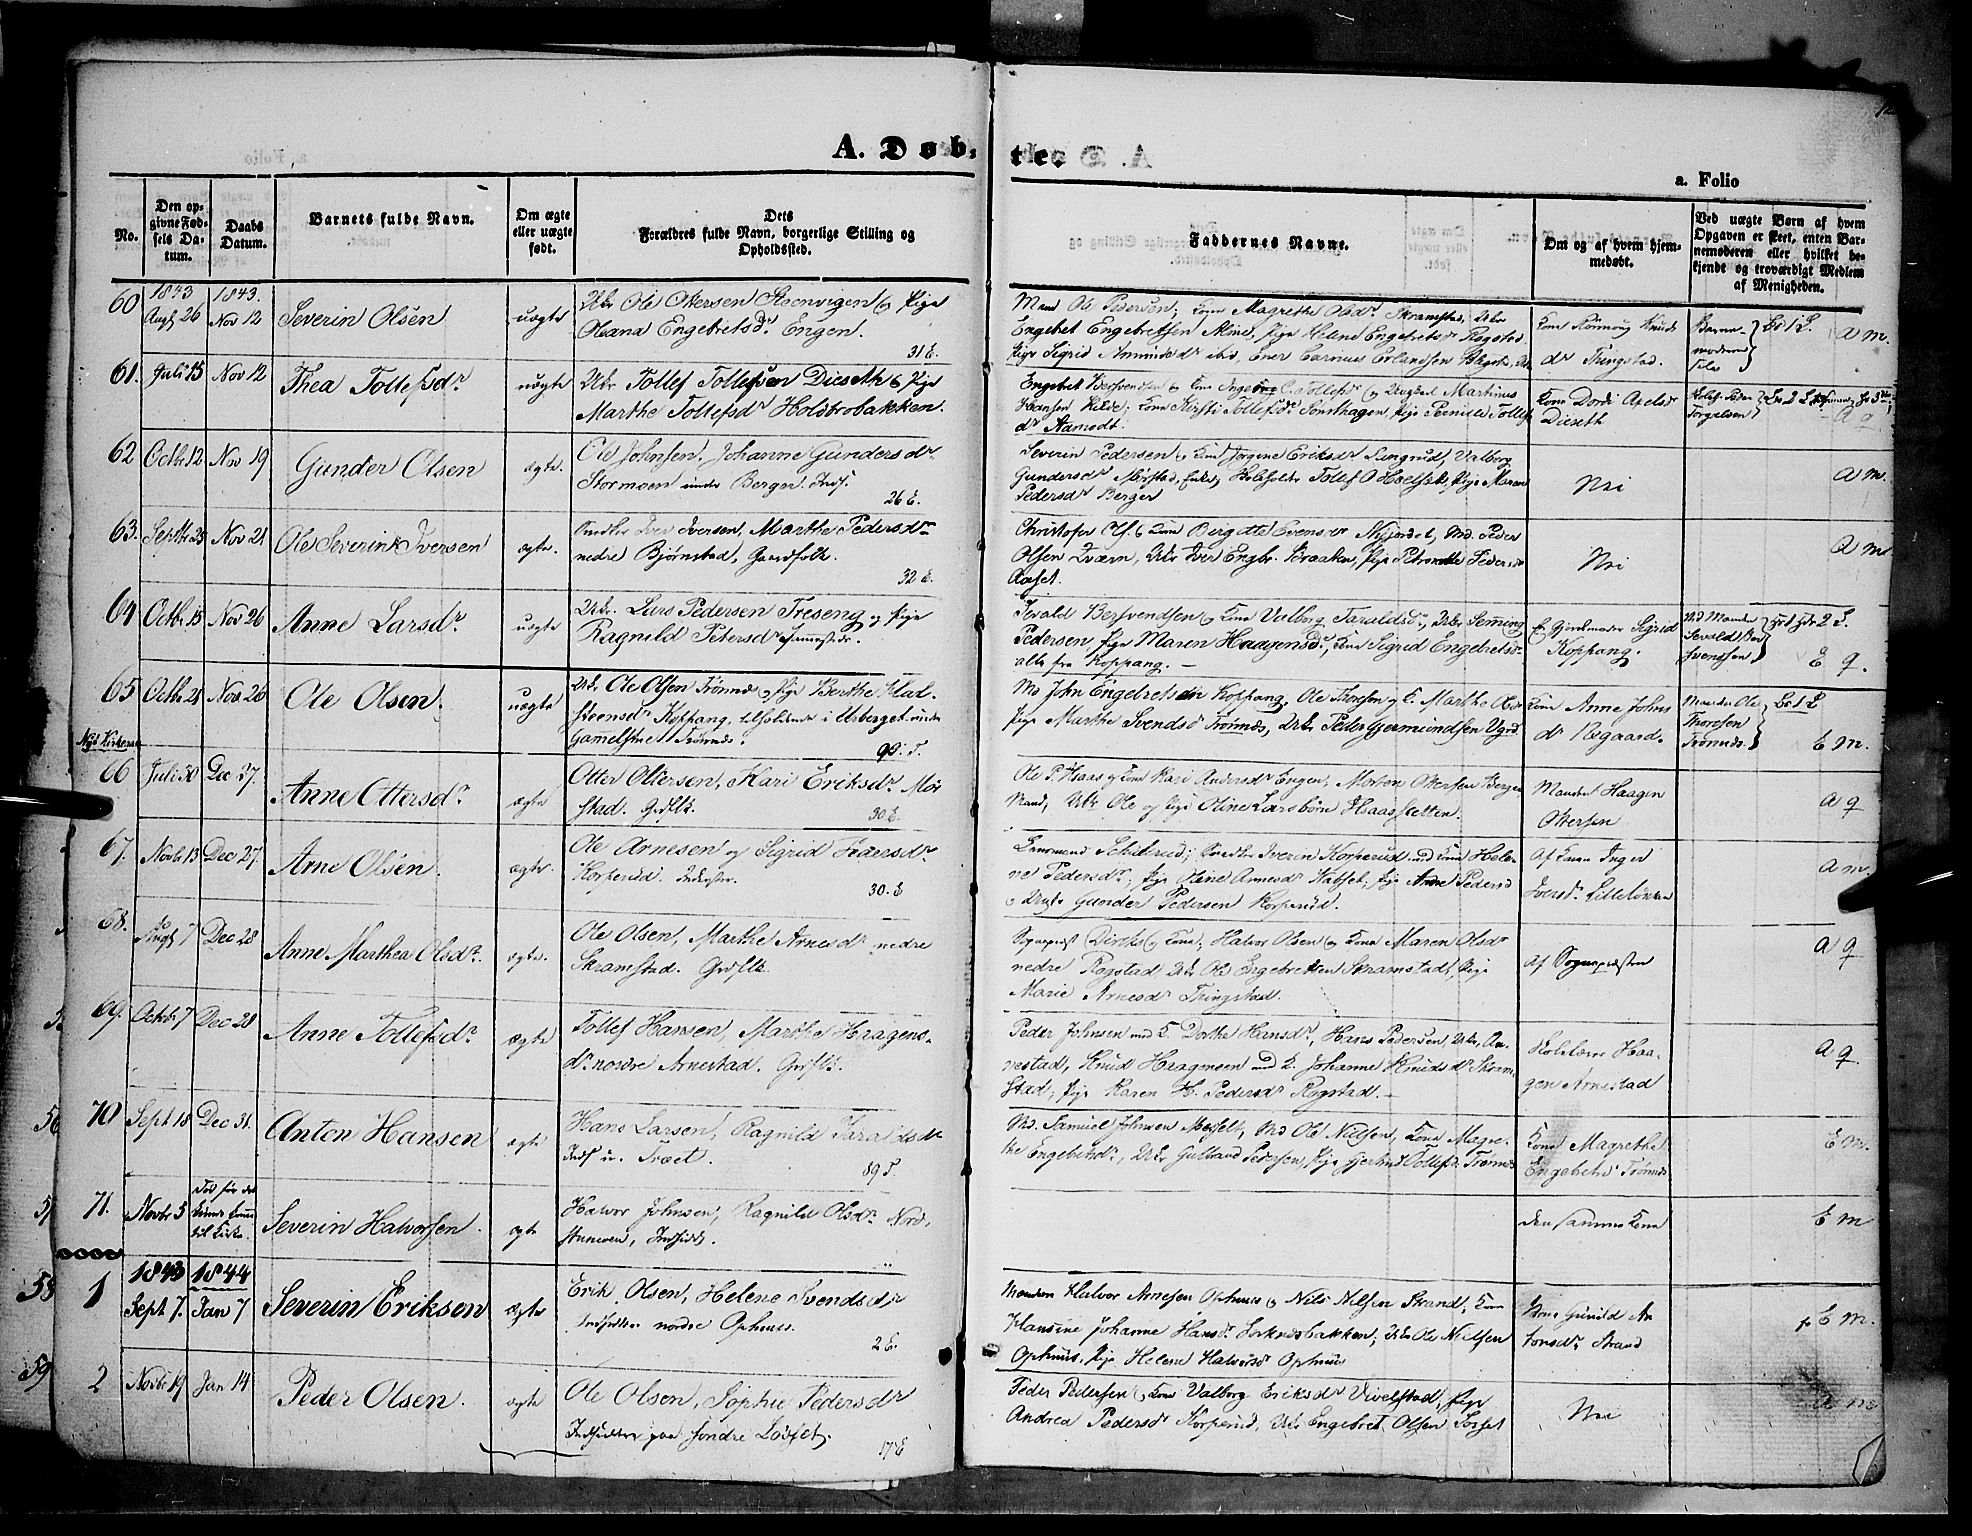 A. Døb, te.
a. Folio
No.
Den op-
givne Fød-
sels Da-
tum.
Daabs
Datum.
Barnets fulde Navn.
Om ægte
eller uægte
født.
Dets
Forældres fulde Navn, borgerlige Stilling og
Opholdssted.
Faddernes Navne.
Om og af hvem hjem-
medøbt.
Ved uægte Børn af hvem
Opgaven er skeet, enten Bar-
nemoderen eller hvilket be-
kjendt og troværdigt Medlem
af Menigheden.
60 1843 Augt 26 1843. Nov 12 Severin Olsen uægte
Ole Ottersen Steenvigen Pige
Oleana Engebretsdr. Engen.
31 E.
Mand Ole Pedersen; Kone Magrethe Olsdr. Skramstad;
Engebret Engebretsen Moine, Pige Helene Engebretsdr Rogstad
Pige Sigrid Amundsdr ibid,
dr Tringstad.
Barne-
moderen
a m.
61. Juli 15 Nov 12 Thea Tollefsdr. uægte
Tollef Tollefsen Dieseth & Pige
Marthe Tollefsdr Holdbrobakken.
Hansen Hilde; Kone Kirsti Tollefsdr Tonsthagen, Pige Pernille Tollefs
dr Aamodt.
Kone Dordi Axelsdr
Dieseth
Torgelsen
62 Octbr 12 Nov 19 Gunder Olsen ægte.
Ole Johnsen, Johanne Gundersdr.
Stormoen under Berger. Inds.
26 E.
Severin Pedersen, Kone Jørgene Eriksdr Rungrud, Valborg
Gundersdr Mørstad, Enke, Tollef O Hoelset, Pige Maren
Pedersdr Berger
Nei
a m.
63. Septbr 25 Nov 21 Ole Severin Iversen ægte.
Iver Iversen, Marthe Pedersdr
nedre Bjørnstad, Gaardfolk.
32 E.
Christofer Olsen & Kone Bergitte Evensdr Nyjordet, Md. Peder
Olsen Qværn, Iver Engbr. Braaten, Pige Petronelle Pedersdr
Aaset.
Nei
a m
64 Octbr 15 Nov 26 Anne Larsdr. uægte
Lars Pedersen Treseng og Pige
Ragnild Petersdr
Sevald Bersvendsen & Kone Valborg Taraldsdr, Semming
Pedersen Pige Maren Haagensdr, Kone Sigrid Engebretsdr
alle fra Koppang.
Gjordemoder Sigrid
Koppang.
Sevald Ber
svendsen
E q.
65 Octbr 21 Nov. 26 Ole Olsen. uægte
Ole Olsen Trønnes & Pige Berthe Hal-
steensdr Koppang, tilholdende i Usberget under
Gamelstue Trønnes.
90. T.
Md John Engebretsen Koppang, Ole Thoresen og K. Marthe Olsdr
Pige Marthe Svendsdr Trønnes, Peder Gjermundsen
Kone Anne Johns
dr Negaard.
Manden Ole
Thoresen
Trønnes.
E m.
66 Juli 30 Dec 27. Anne Ottersdr ægte
Otter Ottersen, Kari Eriksdr Mør
stad. Grdflk.
30 E.
Ole P. Haas og Kone Kari Andersdr Engen, Morten Ottersen Berger
Mand, Ole og Pige Oline Larsbørn Haasstetten.
Manden Haagen
Ottersen
a q
67. Novbr 13 Dec 27. Arne Olsen. ægte.
Ole Arnesen og Sigrid Pedersdr
Korperud. Inderster.
30. E
Severin Korperud med Kone Hele-
ne Pedersdr; Pige Oline Arnesdr Kabset; Pige Anne Pedersd
Gunder Pedersen Korperud.
Af Konen Inger
Iversdr Lilleløkken
a m.
68. Augt 7 Dec 28 Anne Marthea Olsdr. ægte.
Ole Olsen, Marthe Arnesdr nedre
Skramstad. Grdflk.
Sognepræst Diriks & Kone, Halvor Olsen & Kone Maren Olsdr
nedre Rogstad Ole Engebretsen Skramstad, Pige
Marie Arnesdr Tringstad.
Af Sognepræsten
a q
69. Octbr 7 Dec 28 Anne Tollefsdr ægte
Tollef Hansen, Marthe Haagens-
dr. nordre Arnestad. Grdflk.
Peder Johnsen med K. Dorthe Hansdr, Hans Pedersen, Ar-
nestad, Knud Haagensen med K. Johanne Knudsdr Skram-
stad, Pige Karen H. Pedersdr Rogstad.
Skolelærer Haa-
gen Arnestad
a q
56 70 Sept 18 Dec 31. Anton Hansen ægte
Hans Larsen, Ragnild Taraldsdr
Inds u. Træet.
89 T.
Md. Samuel Johnsen Messelt, Md Ole Nielsen, Kone Magre-
the Engebretsdr, Gulbrand Pedersen, Pige Gjertrud Tollefsdr Trønnes
Kone Magrethe
Engebretsdr Trønnes
E m.
57 71. Novbr 5 Død før det
kunde komme
til Kirke. Severin Halvorsen. ægte
Halvor Johnsen, Ragnild Olsdr Nord,
stumoen, Indsidd.
den samme Kone
E m
58 1 1843 Sept 7. 1844 Jan 7 Severin Eriksen ægte
Erik Olsen, Helene Svendsdr
Indsidder nordre Ophuus.
2 E.
Manden Halvor Arnesen Ophuus & Nils Nilsen Strand, Kone
Hansine Johanne Hansdr Lorknesbakken; Ole Nielsen
Ophuus, Pige Helene Halvorsdr Ophuus
Kone Gunild An
tonsdr Strand
E m.
59 2 Novbr 19 Jan 14 Peder Olsen. ægte
Ole Olsen, Sophie Pedersdr
Indsidder paa søndre Løsset.
17 E
Peder Pedersen & Kone Valborg Eriksdr Vivelstad, Pige
Andrea Pedersdr Korperud, Engebret Olsen Losset
Nei
a m